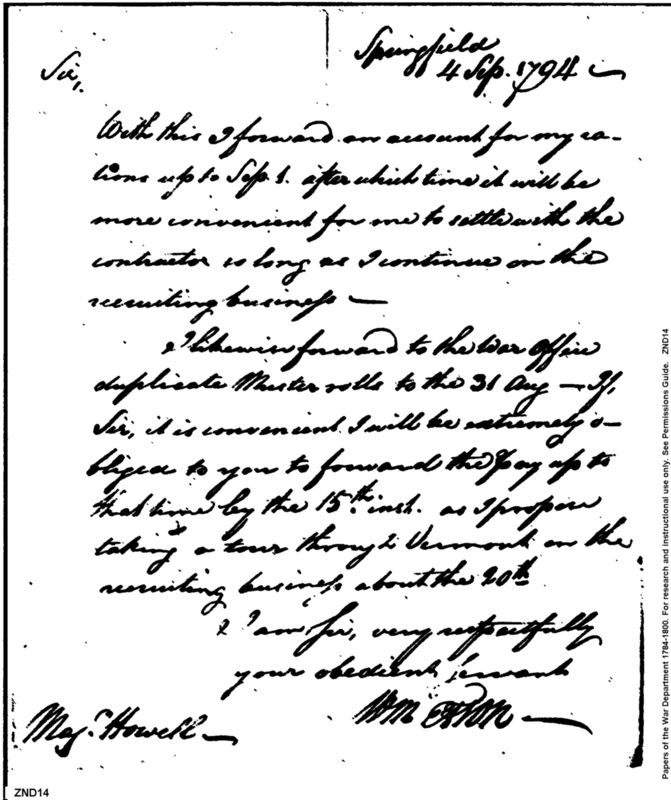 Springfield
4 Sep. 1794 —
Sir,
With this I forward an account for my ra-
tions up to Sep. 1. after which time it will be
more convenient for me to settle with the
contractor so long as I continue on the
recruiting business —
I likewise forward to the War Office
duplicate Muster rolls to the 31 Aug — If,
Sir, it is convenient I will be extremely o-
bliged to you to forward the pay up to
that time by the 15th inst. as I propose
taking a tour through Vermont on the
recruiting business about the 20th
I am Sir, very respectfully
your obedient servant
Wm Eaton —
Majr. Howell —
ZND14
Papers of the War Department 1784-1800. For research and instructional use only. See Permissions Guide. ZND14